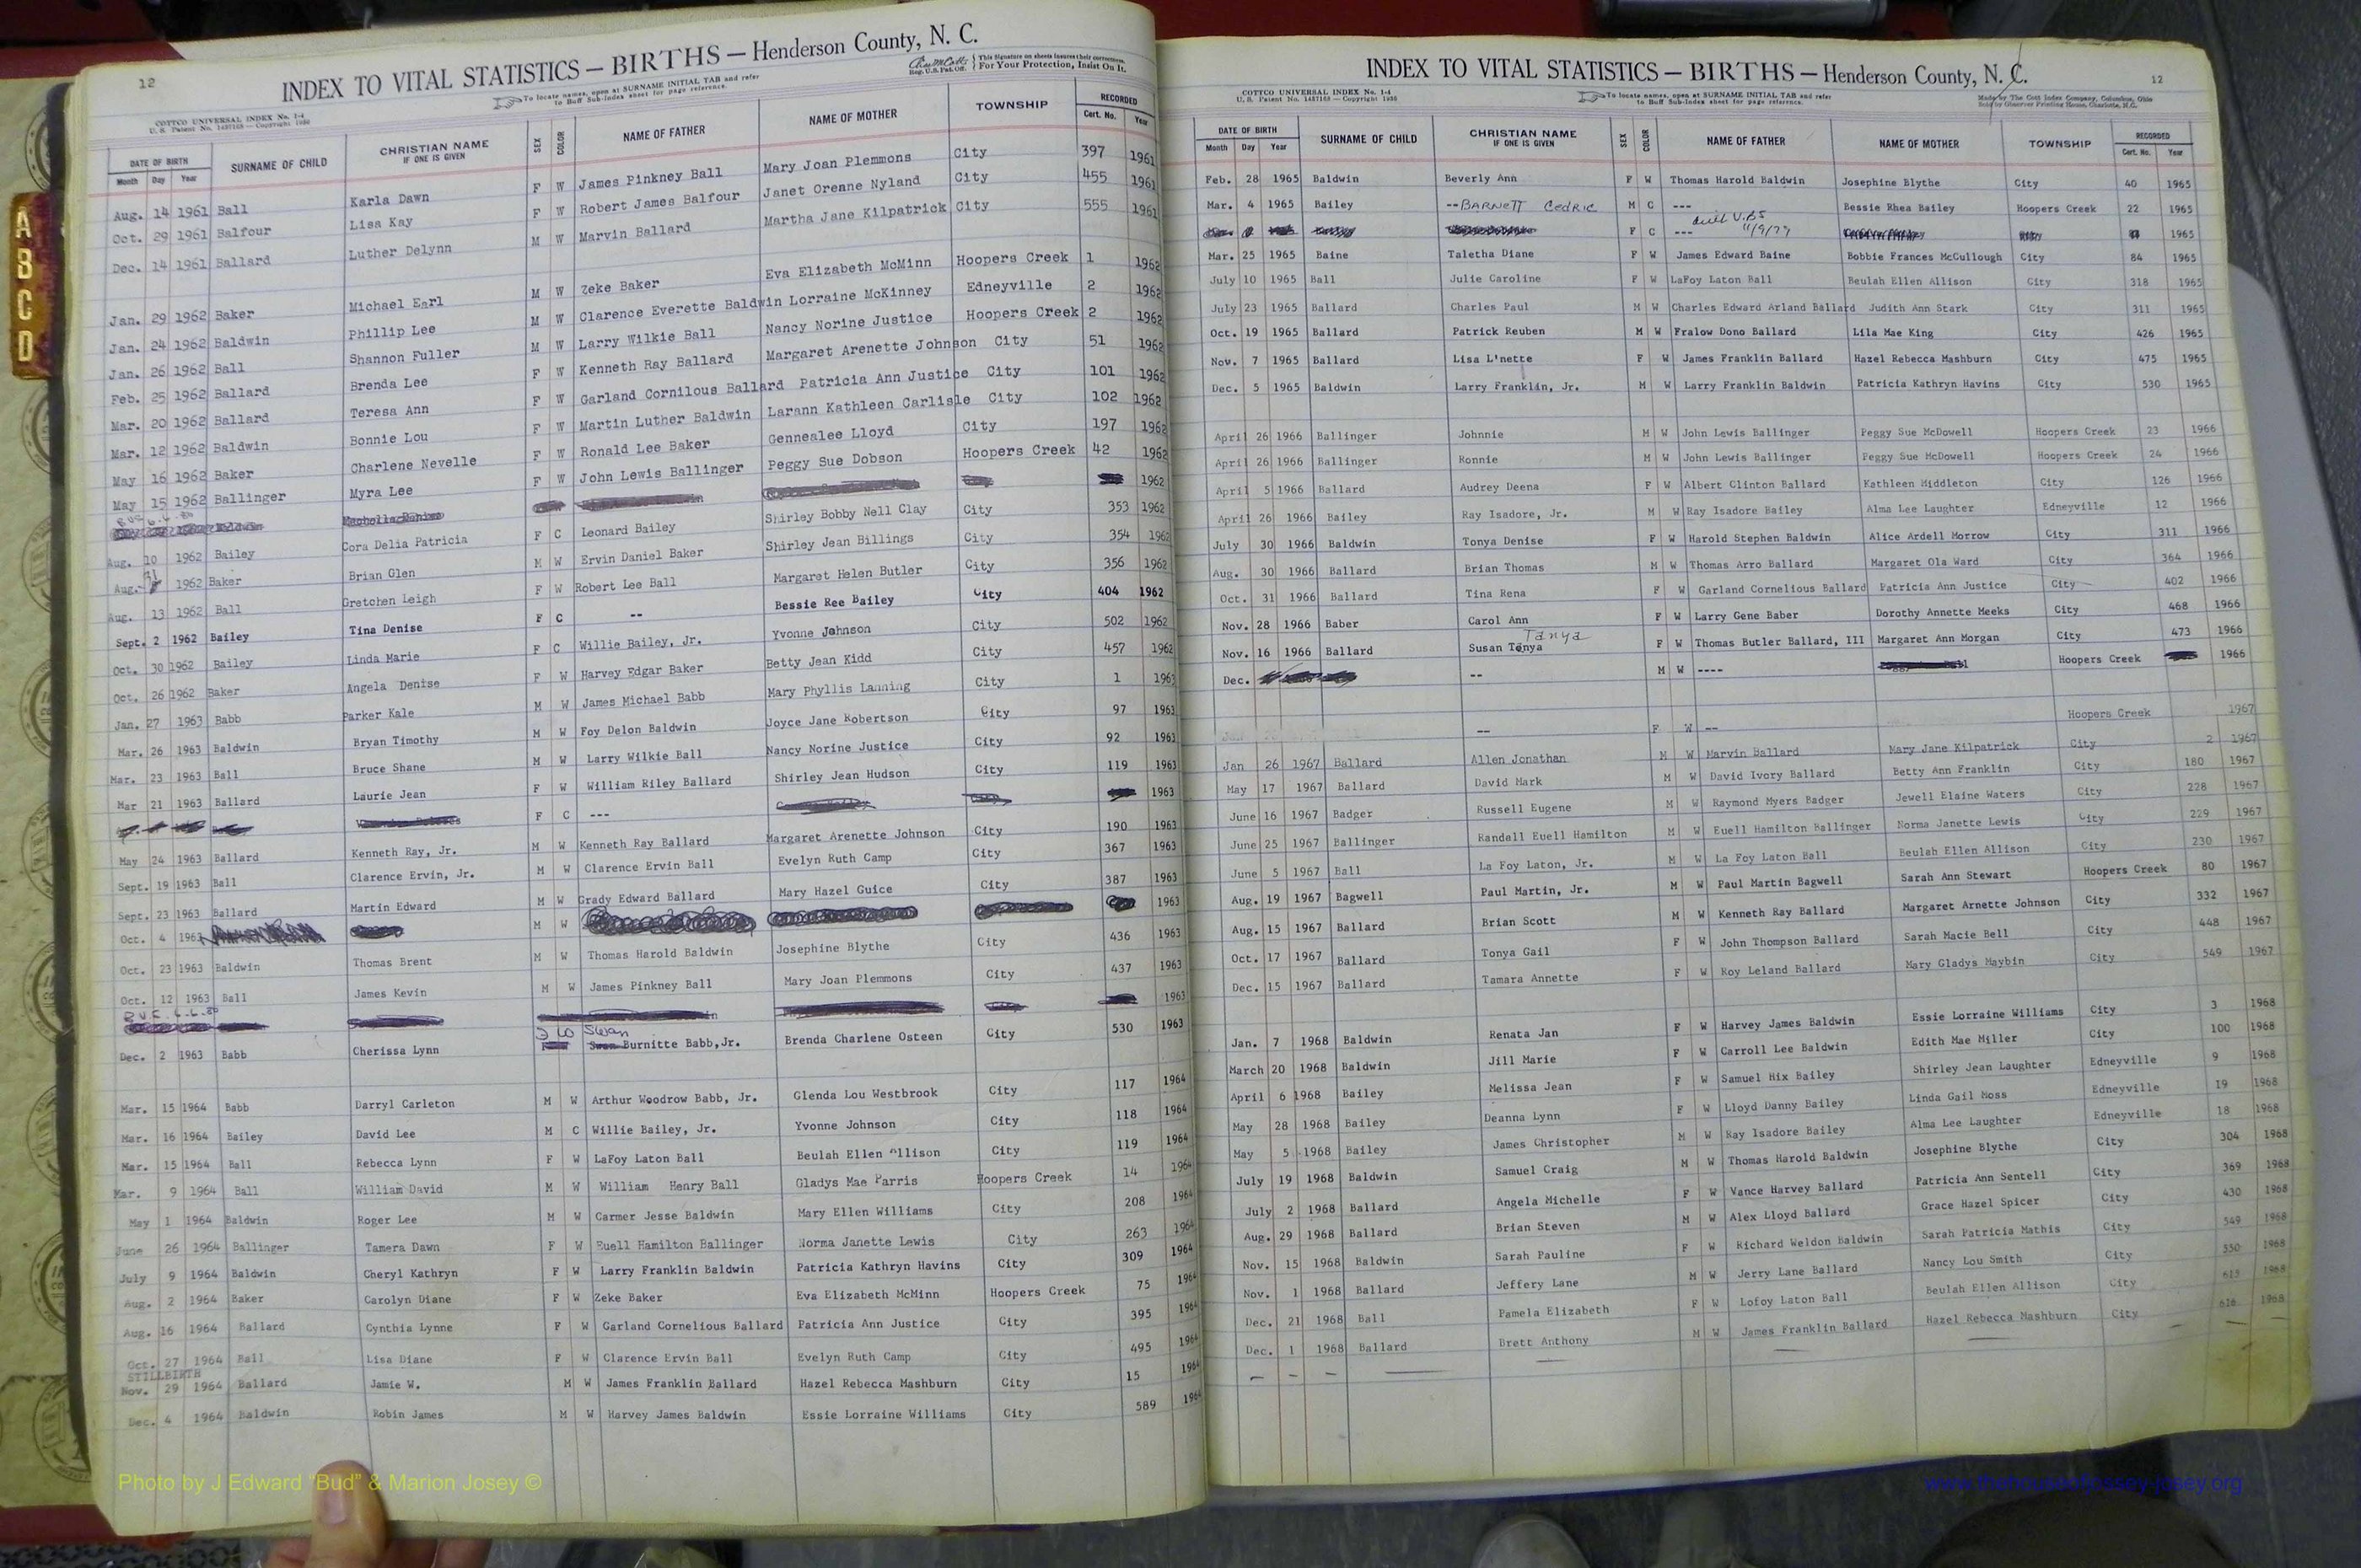 12
INDEX TO VITAL STATISTICS — BIRTHS — Henderson County, N. C.
COTTCO UNIVERSAL INDEX No. 1-4
U. S. Patent No. 1487168 — Copyright 1936
To locate names, open at SURNAME INITIAL TAB and refer
to Buff Sub-Index sheet for page reference.
This Signature on sheets insures their correctness.
For Your Protection, Insist On It.
Reg. U.S. Pat. Off.
DATE OF BIRTH SURNAME OF CHILD CHRISTIAN NAME SEX COLOR NAME OF FATHER NAME OF MOTHER TOWNSHIP RECORDED
Month Day Year IF ONE IS GIVEN Cert. No. Year
Aug. 14 1961 Ball Karla Dawn F W James Pinkney Ball Mary Joan Plemmons City 397 1961
Oct. 29 1961 Balfour Lisa Kay F W Robert James Balfour Janet Oreane Nyland City 455 1961
Dec. 14 1961 Ballard Luther Delynn M W Marvin Ballard Martha Jane Kilpatrick City 555 1961
Jan. 29 1962 Baker Michael Earl M W Zeke Baker Eva Elizabeth McMinn Hoopers Creek 1 1962
Jan. 24 1962 Baldwin Phillip Lee M W Clarence Everette Baldwin Lorraine McKinney Edneyville 2 1962
Jan. 26 1962 Ball Shannon Fuller M W Larry Wilkie Ball Nancy Norine Justice Hoopers Creek 2 1962
Feb. 25 1962 Ballard Brenda Lee F W Kenneth Ray Ballard Margaret Arenette Johnson City 51 1962
Mar. 20 1962 Ballard Teresa Ann F W Garland Cornilous Ballard Patricia Ann Justice City 101 1962
Mar. 12 1962 Baldwin Bonnie Lou F W Martin Luther Baldwin Larann Kathleen Carlisle City 102 1962
May 16 1962 Baker Charlene Nevelle F W Ronald Lee Baker Gennealee Lloyd City 197 1962
May 15 1962 Ballinger Myra Lee F W John Lewis Ballinger Peggy Sue Dobson Hoopers Creek 42 1962
1962
Aug. 10 1962 Bailey Cora Delia Patricia F C Leonard Bailey Shirley Bobby Nell Clay City 353 1962
Aug. 31 1962 Baker Brian Glen M W Ervin Daniel Baker Shirley Jean Billings City 354 1962
Aug. 13 1962 Ball Gretchen Leigh F W Robert Lee Ball Margaret Helen Butler City 356 1962
Sept. 2 1962 Bailey Tina Denise F C -- Bessie Ree Bailey City 404 1962
Oct. 30 1962 Bailey Linda Marie F C Willie Bailey, Jr. Yvonne Johnson City 502 1962
Oct. 26 1962 Baker Angela Denise F W Harvey Edgar Baker Betty Jean Kidd City 457 1962
Jan. 27 1963 Babb Parker Kale M W James Michael Babb Mary Phyllis Lanning City 1 1963
Mar. 26 1963 Baldwin Bryan Timothy M W Foy Delon Baldwin Joyce Jane Robertson City 97 1963
Mar. 23 1963 Ball Bruce Shane M W Larry Wilkie Ball Nancy Norine Justice City 92 1963
Mar 21 1963 Ballard Laurie Jean F W William Riley Ballard Shirley Jean Hudson City 119 1963
F C --- 1963
May 24 1963 Ballard Kenneth Ray, Jr. M W Kenneth Ray Ballard Margaret Arenette Johnson City 190 1963
Sept. 19 1963 Ball Clarence Ervin, Jr. M W Clarence Ervin Ball Evelyn Ruth Camp City 367 1963
Sept. 23 1963 Ballard Martin Edward M W Grady Edward Ballard Mary Hazel Guice City 387 1963
Oct. 4 1963 M W 1963
Oct. 23 1963 Baldwin Thomas Brent M W Thomas Harold Baldwin Josephine Blythe City 436 1963
Oct. 12 1963 Ball James Kevin M W James Pinkney Ball Mary Joan Plemmons City 437 1963
1963
Dec. 2 1963 Babb Cherissa Lynn Swan Burnitte Babb, Jr. Brenda Charlene Osteen City 530 1963
Mar. 15 1964 Babb Darryl Carleton M W Arthur Woodrow Babb, Jr. Glenda Lou Westbrook City 117 1964
Mar. 16 1964 Bailey David Lee M C Willie Bailey, Jr. Yvonne Johnson City 118 1964
Mar. 15 1964 Ball Rebecca Lynn F W LaFoy Laton Ball Beulah Ellen Allison City 119 1964
Mar. 9 1964 Ball William David M W William Henry Ball Gladys Mae Parris Hoopers Creek 14 1964
May 1 1964 Baldwin Roger Lee M W Carmer Jesse Baldwin Mary Ellen Williams 208 1964
June 26 1964 Ballinger Tamera Dawn F W Euell Hamilton Ballinger Norma Janette Lewis City 263 1964
July 9 1964 Baldwin Cheryl Kathryn F W Larry Franklin Baldwin Patricia Kathryn Havins City 309 1964
Aug. 2 1964 Baker Carolyn Diane F W Zeke Baker Eva Elizabeth McMinn Hoopers Creek 75 1964
Aug. 16 1964 Ballard Cynthia Lynne F W Garland Cornelious Ballard Patricia Ann Justice City 395 1964
Oct. 27 1964 Ball Lisa Diane F W Clarence Ervin Ball Evelyn Ruth Camp City 495 1964
STILLBIRTH
Nov. 29 1964 Ballard Jamie W. M W James Franklin Ballard Hazel Rebecca Mashburn City 15 1964
Dec. 4 1964 Baldwin Robin James M W Harvey James Baldwin Essie Lorraine Williams City 589 1964
INDEX TO VITAL STATISTICS — BIRTHS — Henderson County, N. C.
12
COTTCO UNIVERSAL INDEX No. 1-4
U. S. Patent No. 1487168 — Copyright 1936
To locate names, open at SURNAME INITIAL TAB and refer
to Buff Sub-Index sheet for page reference.
Made by The Cott Index Company, Columbus, Ohio
Sold by Observer Printing House, Charlotte, N.C.
DATE OF BIRTH SURNAME OF CHILD CHRISTIAN NAME SEX COLOR NAME OF FATHER NAME OF MOTHER TOWNSHIP RECORDED
Month Day Year IF ONE IS GIVEN Cert. No. Year
Feb. 28 1965 Baldwin Beverly Ann F W Thomas Harold Baldwin Josephine Blythe City 40 1965
Mar. 4 1965 Bailey --BARNETT CEDRIC M C --- Bessie Rhea Bailey Hoopers Creek 22 1965
F C --- 11/9/79 1965
Mar. 25 1965 Baine Taletha Diane F W James Edward Baine Bobbie Frances McCullough City 84 1965
July 10 1965 Ball Julie Caroline F W LaFoy Laton Ball Beulah Ellen Allison City 318 1965
July 23 1965 Ballard Charles Paul M W Charles Edward Arland Ballard Judith Ann Stark City 311 1965
Oct. 19 1965 Ballard Patrick Reuben M W Fralow Dono Ballard Lila Mae King City 426 1965
Nov. 7 1965 Ballard Lisa L'nette F W James Franklin Ballard Hazel Rebecca Mashburn City 475 1965
Dec. 5 1965 Baldwin Larry Franklin, Jr. M W Larry Franklin Baldwin Patricia Kathryn Havins City 530 1965
April 26 1966 Ballinger Johnnie M W John Lewis Ballinger Peggy Sue McDowell Hoopers Creek 23 1966
April 26 1966 Ballinger Ronnie M W John Lewis Ballinger Peggy Sue McDowell Hoopers Creek 24 1966
April 5 1966 Ballard Audrey Deena F W Albert Clinton Ballard Kathleen Middleton City 126 1966
April 26 1966 Bailey Ray Isadore, Jr. M W Ray Isadore Bailey Alma Lee Laughter Edneyville 12 1966
July 30 1966 Baldwin Tonya Denise F W Harold Stephen Baldwin Alice Ardell Morrow City 311 1966
Aug. 30 1966 Ballard Brian Thomas M W Thomas Arro Ballard Margaret Ola Ward City 364 1966
Oct. 31 1966 Ballard Tina Rena F W Garland Cornelious Ballard Patricia Ann Justice City 402 1966
Nov. 28 1966 Baber Carol Ann F W Larry Gene Baber Dorothy Annette Meeks City 468 1966
Tanya
Nov. 16 1966 Ballard Susan Tonya F W Thomas Butler Ballard, III Margaret Ann Morgan City 473 1966
Dec. -- M W ---- Hoopers Creek 1966
-- F W -- Hoopers Creek 1967
Jan 26 1967 Ballard Allen Jonathan M W Marvin Ballard Mary Jane Kilpatrick City 2 1967
May 17 1967 Ballard David Mark M W David Ivory Ballard Betty Ann Franklin City 180 1967
June 16 1967 Badger Russell Eugene M W Raymond Myers Badger Jewell Elaine Waters City 228 1967
June 25 1967 Ballinger Randall Euell Hamilton M W Euell Hamilton Ballinger Norma Janette Lewis City 229 1967
June 5 1967 Ball La Foy Laton, Jr. M W La Foy Laton Ball Beulah Ellen Allison City 230 1967
Aug. 19 1967 Bagwell Paul Martin, Jr. M W Paul Martin Bagwell Sarah Ann Stewart Hoopers Creek 80 1967
Aug. 15 1967 Ballard Brian Scott M W Kenneth Ray Ballard Margaret Arnette Johnson City 332 1967
Oct. 17 1967 Ballard Tonya Gail F W John Thompson Ballard Sarah Macie Bell City 448 1967
Dec. 15 1967 Ballard Tamara Annette F W Roy Leland Ballard Mary Gladys Maybin City 549 1967
Jan. 7 1968 Baldwin Renata Jan F W Harvey James Baldwin Essie Lorraine Williams City 3 1968
March 20 1968 Baldwin Jill Marie F W Carroll Lee Baldwin Edith Mae Miller City 100 1968
April 6 1968 Bailey Melissa Jean F W Samuel Hix Bailey Shirley Jean Laughter Edneyville 9 1968
May 28 1968 Bailey Deanna Lynn F W Lloyd Danny Bailey Linda Gail Moss Edneyville 19 1968
May 5 1968 Bailey James Christopher M W Ray Isadore Bailey Alma Lee Laughter Edneyville 18 1968
July 19 1968 Baldwin Samuel Craig M W Thomas Harold Baldwin Josephine Blythe City 304 1968
July 2 1968 Ballard Angela Michelle F W Vance Harvey Ballard Patricia Ann Sentell City 369 1968
Aug. 29 1968 Ballard Brian Steven M W Alex Lloyd Ballard Grace Hazel Spicer City 430 1968
Nov. 15 1968 Baldwin Sarah Pauline F W Richard Weldon Baldwin Sarah Patricia Mathis City 549 1968
Nov. 1 1968 Ballard Jeffery Lane M W Jerry Lane Ballard Nancy Lou Smith City 550 1968
Dec. 21 1968 Ball Pamela Elizabeth F W Lofoy Laton Ball Beulah Ellen Allison City 613 1968
Dec. 1 1968 Ballard Brett Anthony M W James Franklin Ballard Hazel Rebecca Mashburn City 616 1968
A
B
C
D
Photo by J Edward "Bud" & Marion Josey ©
www.thehouseofjossey-josey.org